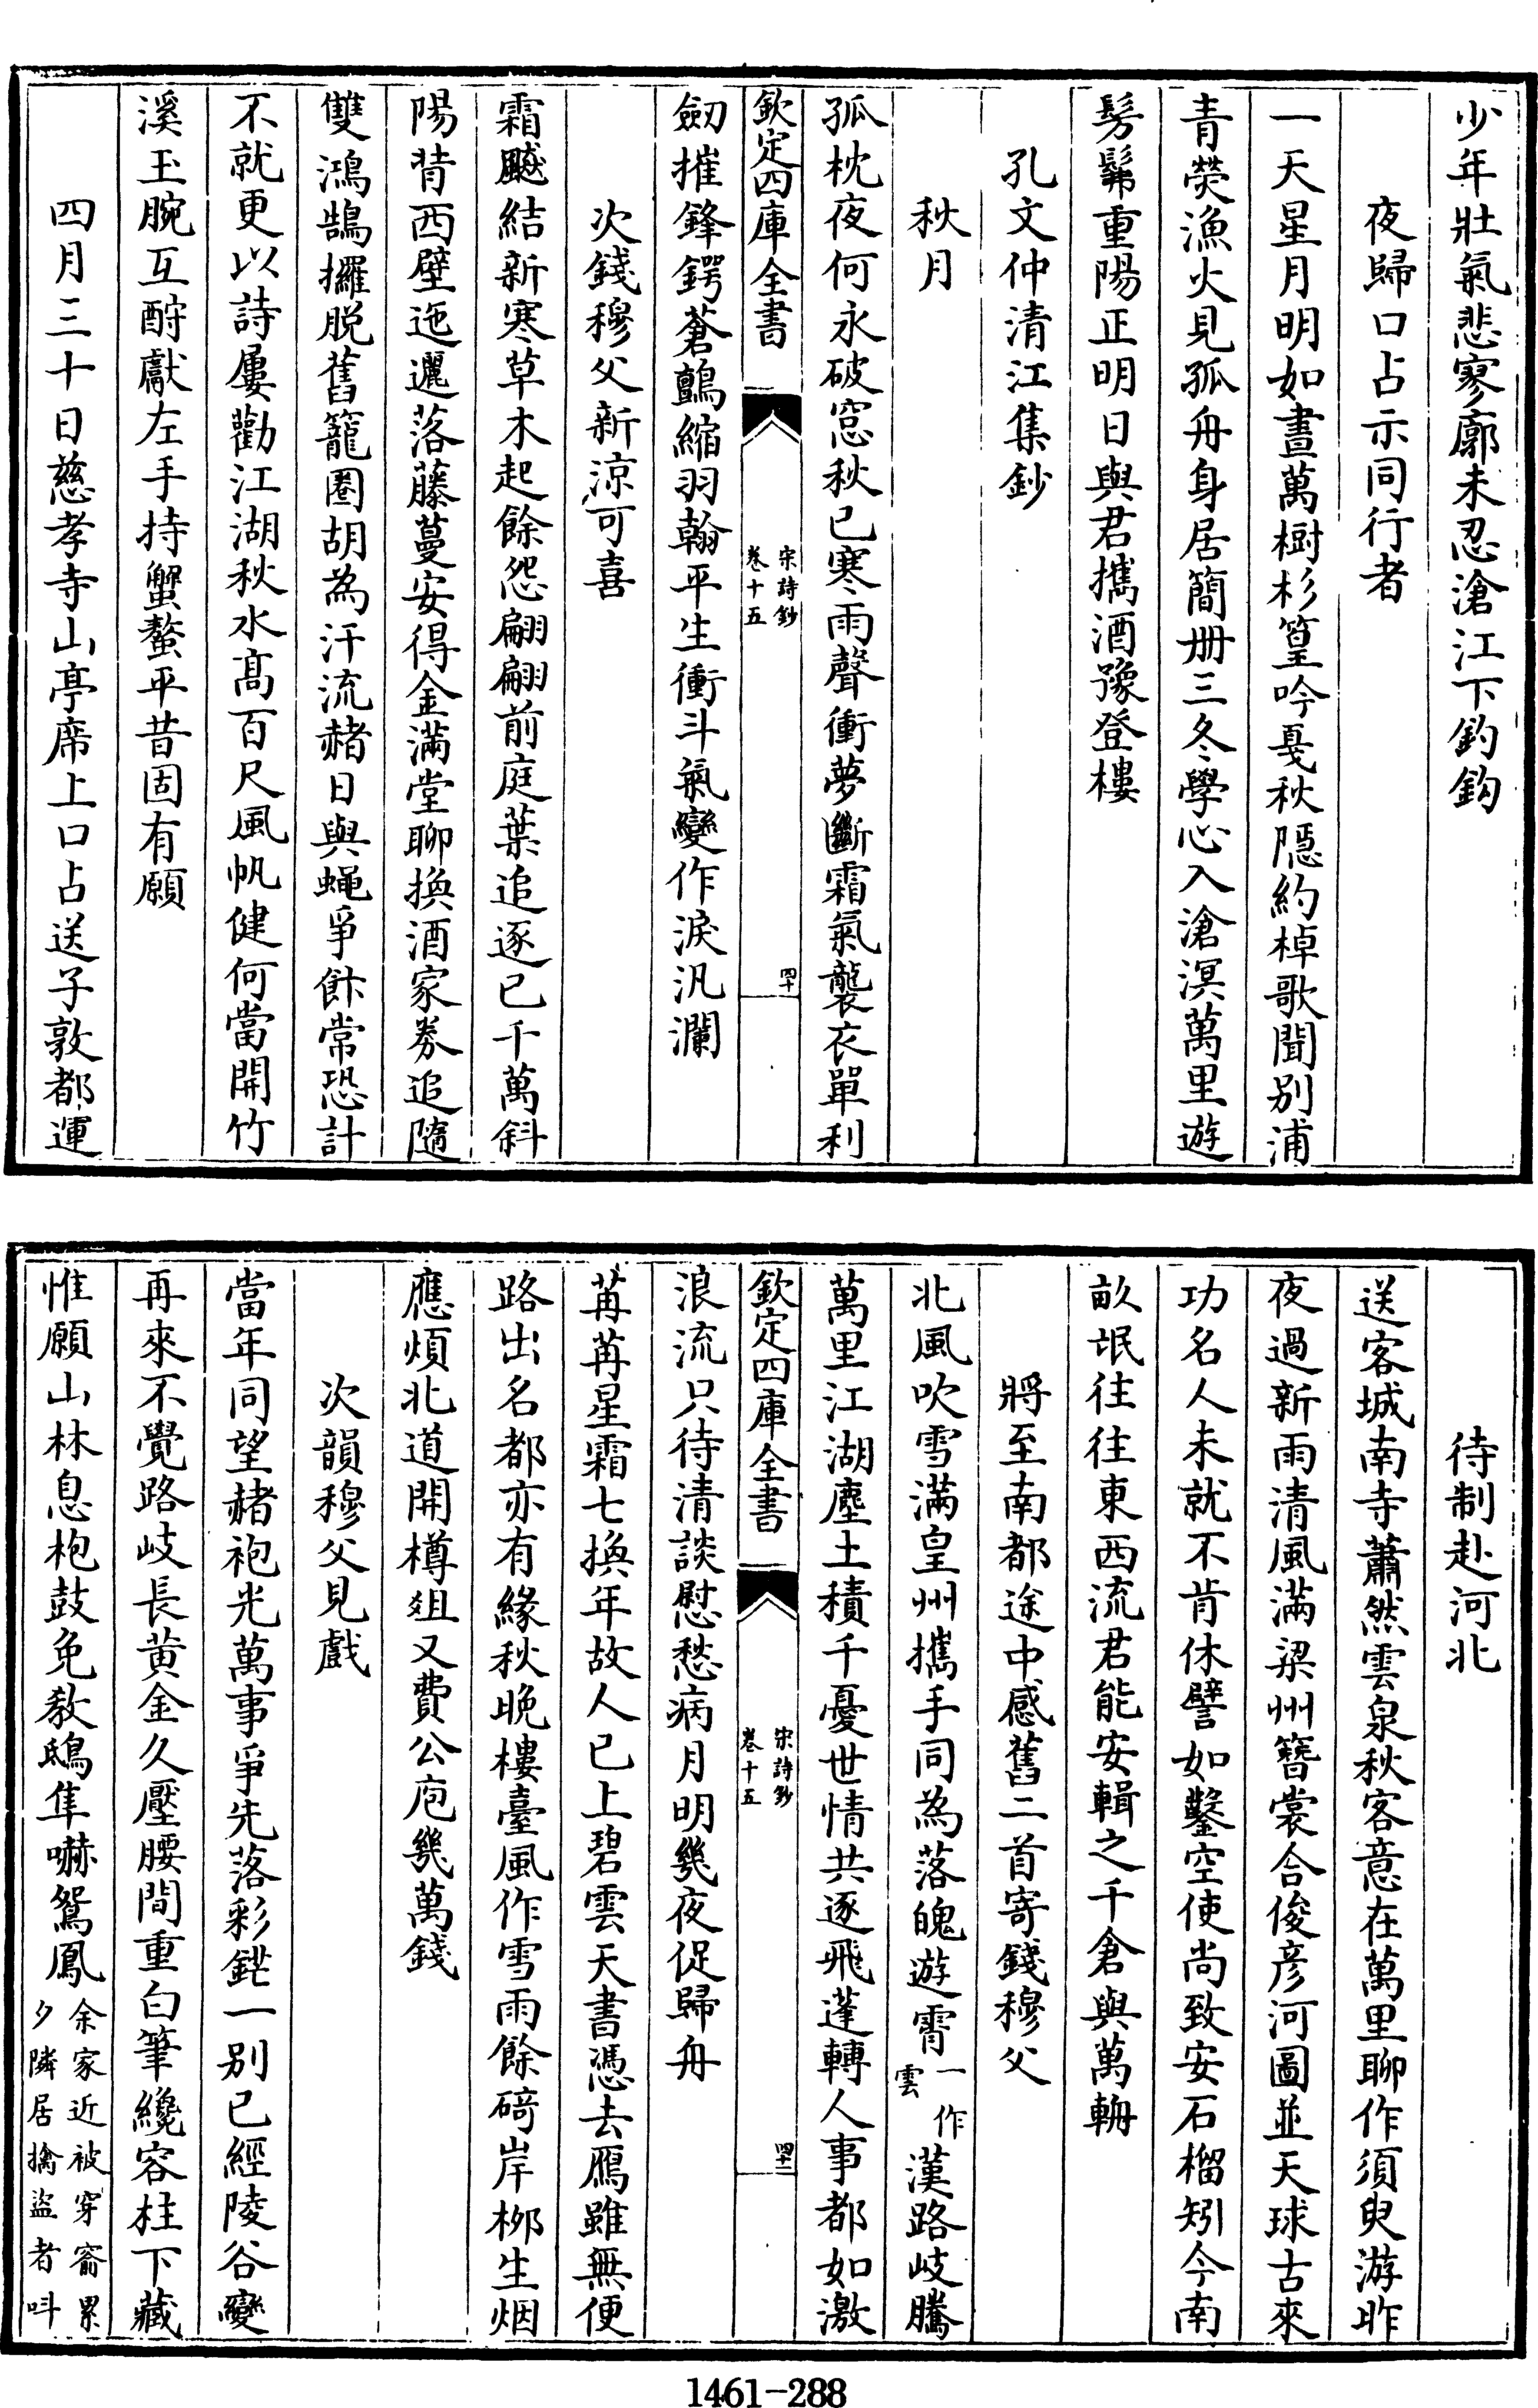 少年壯氣悲寥廓未忍滄江下釣鈎
夜歸口占示同行者
一天星月明如晝萬樹杉篁吟戞秋隱約棹歌聞别浦
青熒漁火見孤舟身居簡冊三冬學心入滄溟萬里遊
髣髴重陽正明日與君攜酒豫登樓
孔文仲清江集鈔
秋月
孤枕夜何永破窓秋已寒雨聲衝夢斷霜氣襲衣單利
欽定四庫全書
宋詩鈔
卷十五
四十
劒摧鋒鍔蒼鸇縮羽翰平生衝斗氣變作淚汎瀾
次錢穆父新涼可喜
霜飈結新寒草木起餘怨翩翩前庭葉追逐已千萬斜
陽背西壁迤邐落藤蔓安得金滿堂聊換酒家券追隨
雙鴻鵠擺脱舊籠圈胡為汗流赭日與蠅爭飰常恐計
不就更以詩屢勸江湖秋水髙百尺風帆健何當開竹
溪玉腕互酧獻左手持蟹螯平昔固有願
四月三十日慈孝寺山亭席上口占送子敦都運
待制赴河北
送客城南寺蕭然雲泉秋客意在萬里聊作須臾游昨
夜過新雨清風滿梁州簪裳合俊彦河圖並天球古來
功名人未就不肯休譬如鑿空使尚致安石榴矧今南
畝氓往往東西流君能安輯之千倉與萬輈
將至南都途中感舊二首寄錢穆父
北風吹雪滿皇州攜手同為落魄遊霄一作雲漢路岐騰
萬里江湖塵土積千憂世情共逐飛蓬轉人事都如激
欽定四庫全書
宋詩鈔
卷十五
四十一
浪流只待清談慰愁病月明幾夜促歸舟
苒苒星霜七換年故人已上碧雲天書憑去鴈雖無便
路出名都亦有緣秋晚樓臺風作雪雨餘碕岸栁生烟
應煩北道開樽俎又費公庖幾萬錢
次韻穆父見戲
當年同望赭袍光萬事爭先落彩鋩一别已經陵谷變
再來不覺路岐長黄金久壓腰間重白筆纔容柱下藏
惟願山林息枹鼓免教鴟隼嚇鴛鳳余家近被穿窬累
夕隣居擒盜者呌
1461-288